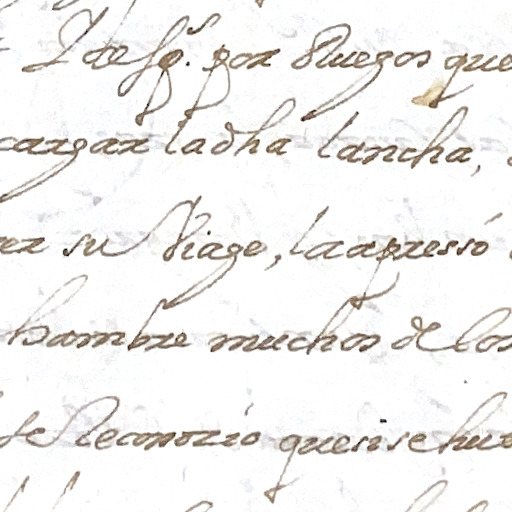 Y de sp.s por Ruegos que
cargar la dha lancha,
su Viage, la apressó
hambre muchos de los
se Reconozio que si se huv